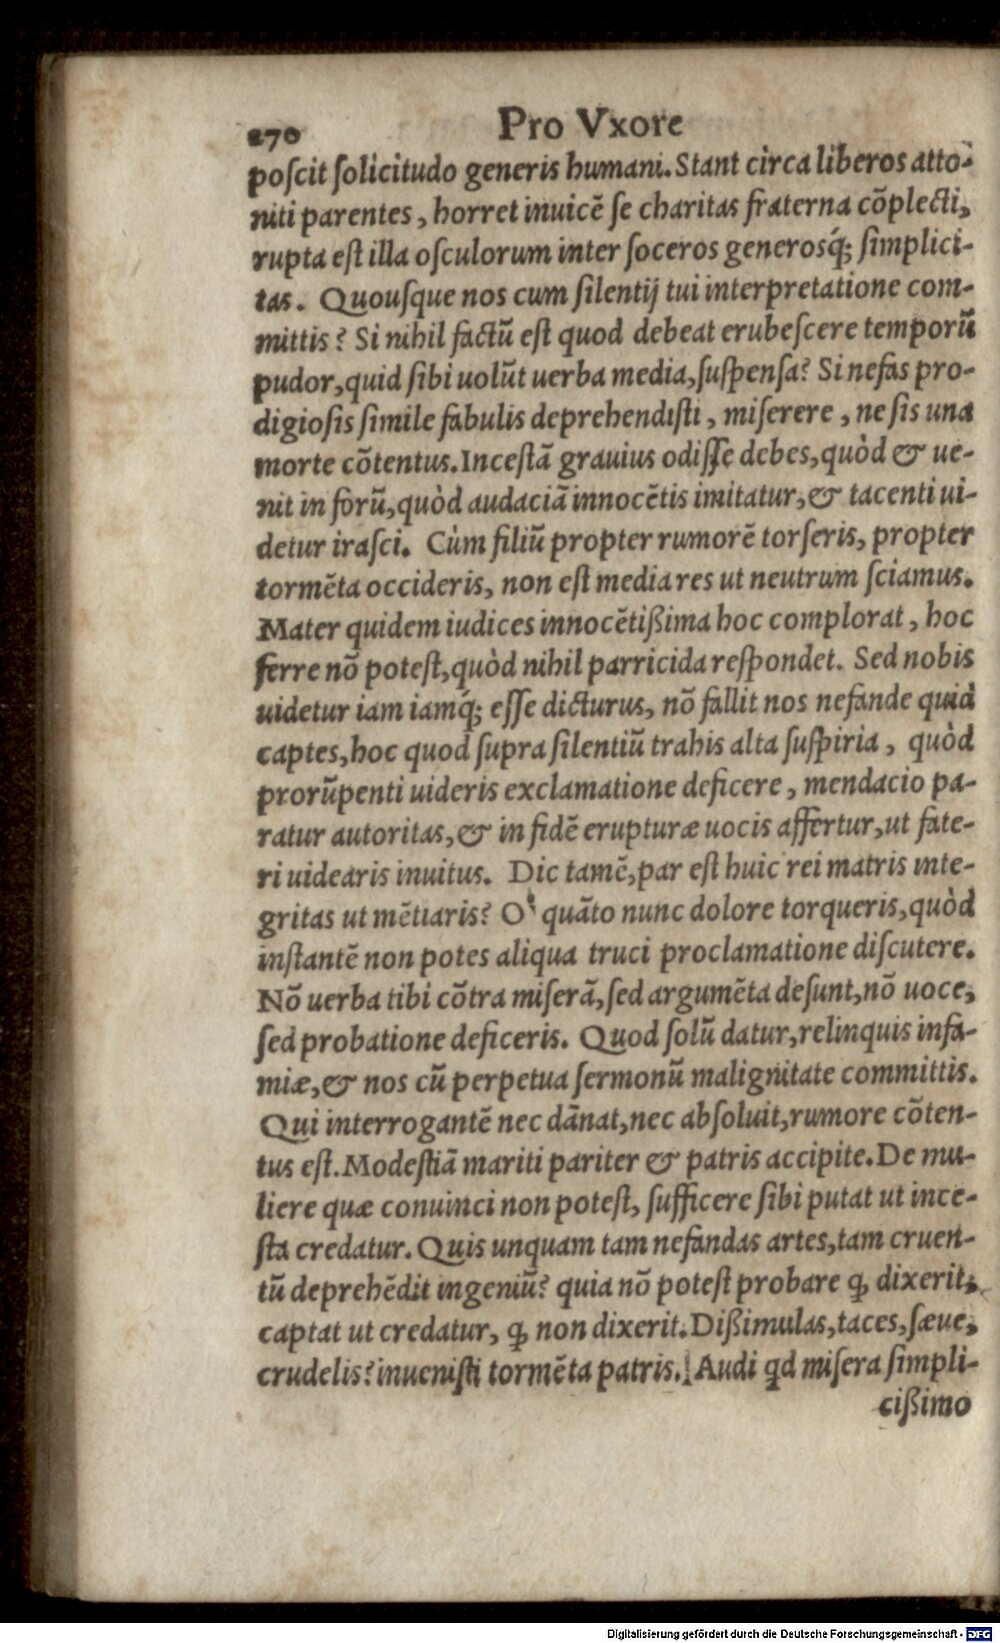 270
Pro Vxore
poſcit ſolicitudo generis humani. Stant circa liberos atto-
niti parentes, horret inuicē ſe charitas fraterna cōplecti,
rupta eſt illa oſculorum inter ſoceros generosq́; ſimplici-
tas. Quouſque nos cum ſilentij tui interpretatione com-
mittis? Si nihil factū eſt quod debeat erubeſcere temporū
pudor, quid ſibi uolūt uerba media, ſuſpenſa? Si nefas pro-
digioſis ſimile fabulis deprehendiſti, miſerere, ne ſis una
morte cōtentus. Inceſtā grauius odiſſe debes, quòd & ue-
nit in forū, quòd audaciā innocētis imitatur, & tacenti ui-
detur iraſci. Cùm filiū propter rumorē torſeris, propter
tormēta occideris, non eſt media res ut neutrum ſciamus.
Mater quidem iudices innocētißima hoc complorat, hoc
ferre nō poteſt, quòd nihil parricida reſpondet. Sed nobis
uidetur iam iamq́; eſſe dicturus, nō fallit nos nefande quid
captes, hoc quod ſupra ſilentiū trahis alta ſuſpiria, quòd
prorūpenti uideris exclamatione deficere, mendacio pa-
ratur autoritas, & in fidē erupturæ uocis affertur, ut fate-
ri uidearis inuitus. Dic tamē, par eſt huic rei matris inte-
gritas ut mētiaris? O quāto nunc dolore torqueris, quòd
inſtantē non potes aliqua truci proclamatione diſcutere.
Nō uerba tibi cōtra miſerā, ſed argumēta deſunt, nō uoce,
ſed probatione deficeris. Quod ſolū datur, relinquis infa-
miæ, & nos cū perpetua ſermonū malignitate committis.
Qui interrogantē nec dānat, nec abſoluit, rumore cōten-
tus eſt. Modeſtiā mariti pariter & patris accipite. De mu-
liere quæ conuinci non poteſt, ſufficere ſibi putat ut ince-
ſta credatur. Quis unquam tam nefandas artes, tam cruen-
tū deprehēdit ingeniū? quia nō poteſt probare ꝙ dixerit,
captat ut credatur, ꝙ non dixerit. Dißimulas, taces, ſæue,
crudelis? inueniſti tormēta patris. Audi qd miſera ſimpli-
cißimo
Digitalisierung gefördert durch die Deutsche Forschungsgemeinschaft - DFG